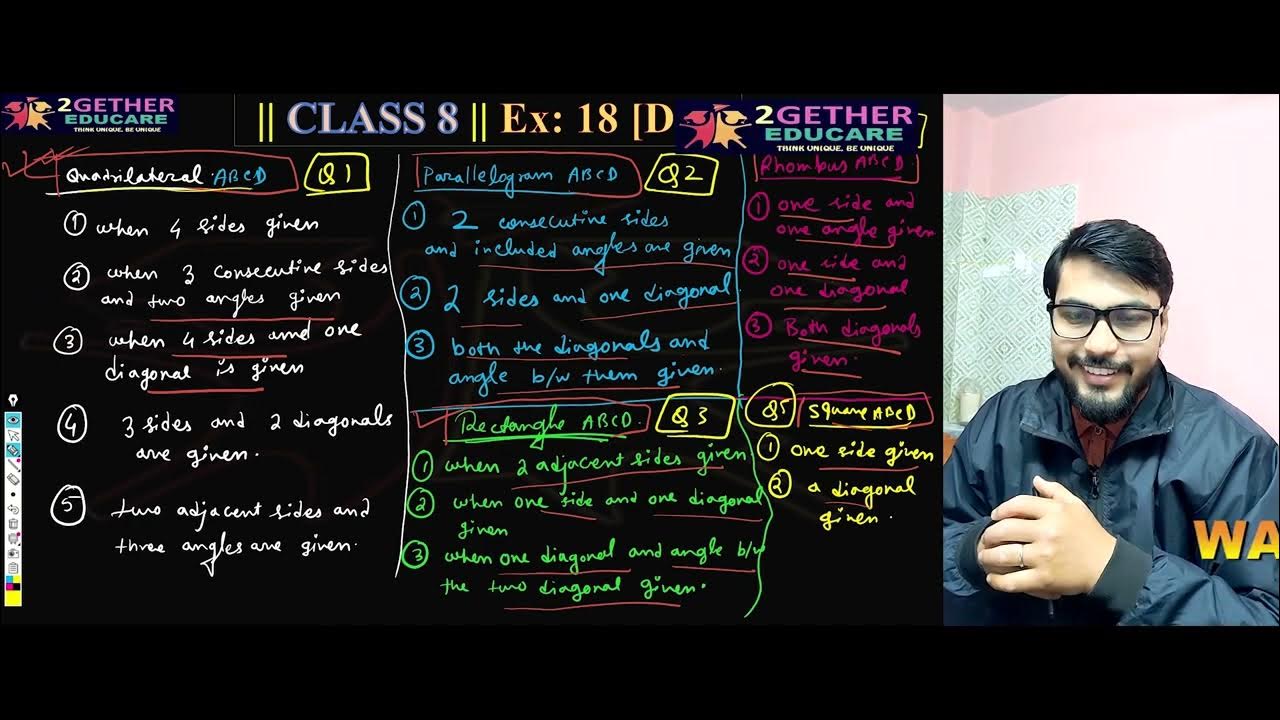 2GETHER
EDUCARE
THINK UNIQUE. BE UNIQUE
|| CLASS 8 || Ex: 18 [D
2GETHER
EDUCARE
THINK UNIQUE. BE UNIQUE
Quadrilateral ABCD Q1
① when 4 sides given
② when 3 consecutive sides
and two angles given
③ when 4 sides and one
diagonal is given
④ 3 sides and 2 diagonals
are given.
⑤ two adjacent sides and
three angles are given.
Parallelogram ABCD Q2
① 2 consecutive sides
and included angles are given
② 2 sides and one diagonal.
③ both the diagonals and
angle b/w them given.
Rectangle ABCD. Q3
① when 2 adjacent sides given
② when one side and one diagonal
given
③ when one diagonal and angle b/w
the two diagonal given.
Rhombus ABCD
① one side and
one angle given
② one side and
one diagonal
③ Both diagonals
given.
Q5 Square ABCD
① one side given
② a diagonal
given.
WA